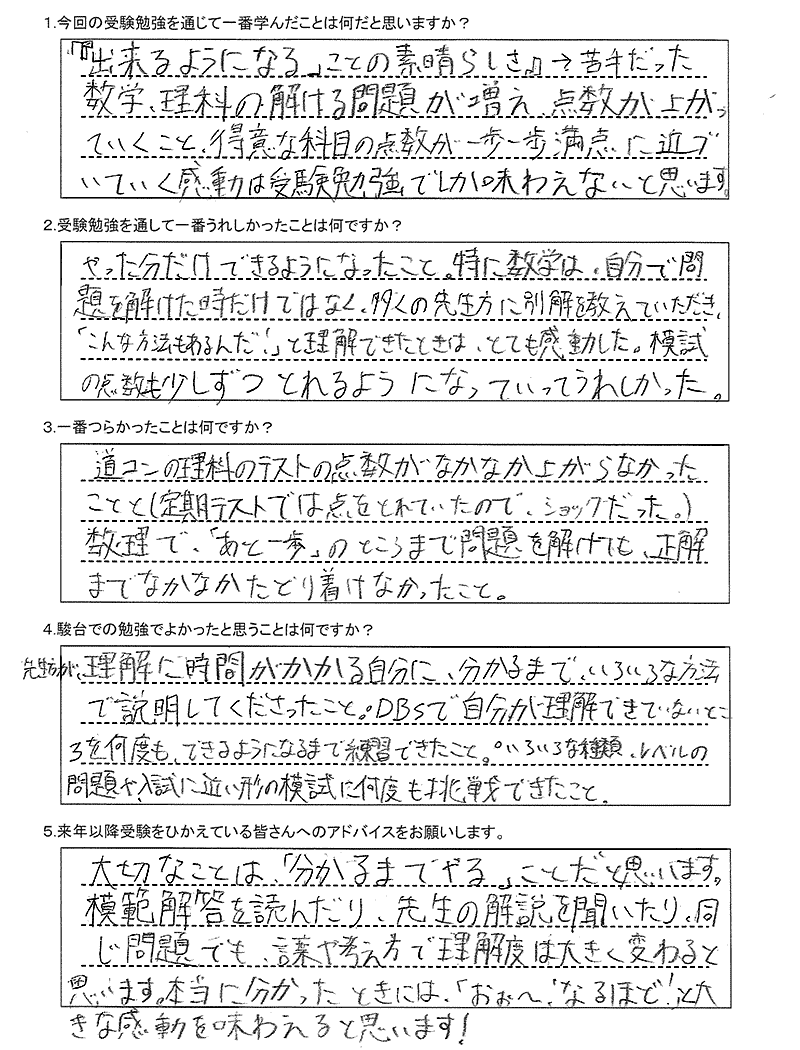 1.今回の受験勉強を通じて一番学んだことは何だと思いますか？
『「出来るようになる」ことの素晴らしさ』→苦手だった
数学、理科の解ける問題が増え、点数が上がっ
ていくこと、得意な科目の点数が一歩一歩満点に近づ
いていく感動は受験勉強でしか味わえないと思います。
2.受験勉強を通して一番うれしかったことは何ですか？
やった分だけできるようになったこと。特に数学は、自分で問
題を解けた時だけではなく、多くの先生方に別解を教えていただき、
「こんな方法もあるんだ！」と理解できたときは、とても感動した。模試
の点数も少しずつとれるようになっていってうれしかった。
3.一番つらかったことは何ですか？
道コンの理科のテストの点数がなかなか上がらなかった
ことと(定期テストでは点をとれていたので、ショックだった。)
数理で、「あと一歩」のところまで問題を解けても、正解
までなかなかたどり着けなかったこと。
4.駿台での勉強でよかったと思うことは何ですか？
先生方が、理解に時間がかかる自分に、分かるまで、いろいろな方法
で説明してくださったこと。。DBSで自分が理解できていないとこ
ろを何度も、できるようになるまで練習できたこと。。いろいろな種類、レベルの
問題や入試に近い形の模試に何度も挑戦できたこと。
5.来年以降受験をひかえている皆さんへのアドバイスをお願いします。
大切なことは、「分かるまでやる」ことだと思います。
模範解答を読んだり、先生の解説を聞いたり、同
じ問題でも、言葉や考え方で理解度は大きく変わると
思います。本当に分かったときには、「おぉ〜！なるほど！」と大
きな感動を味わえると思います！